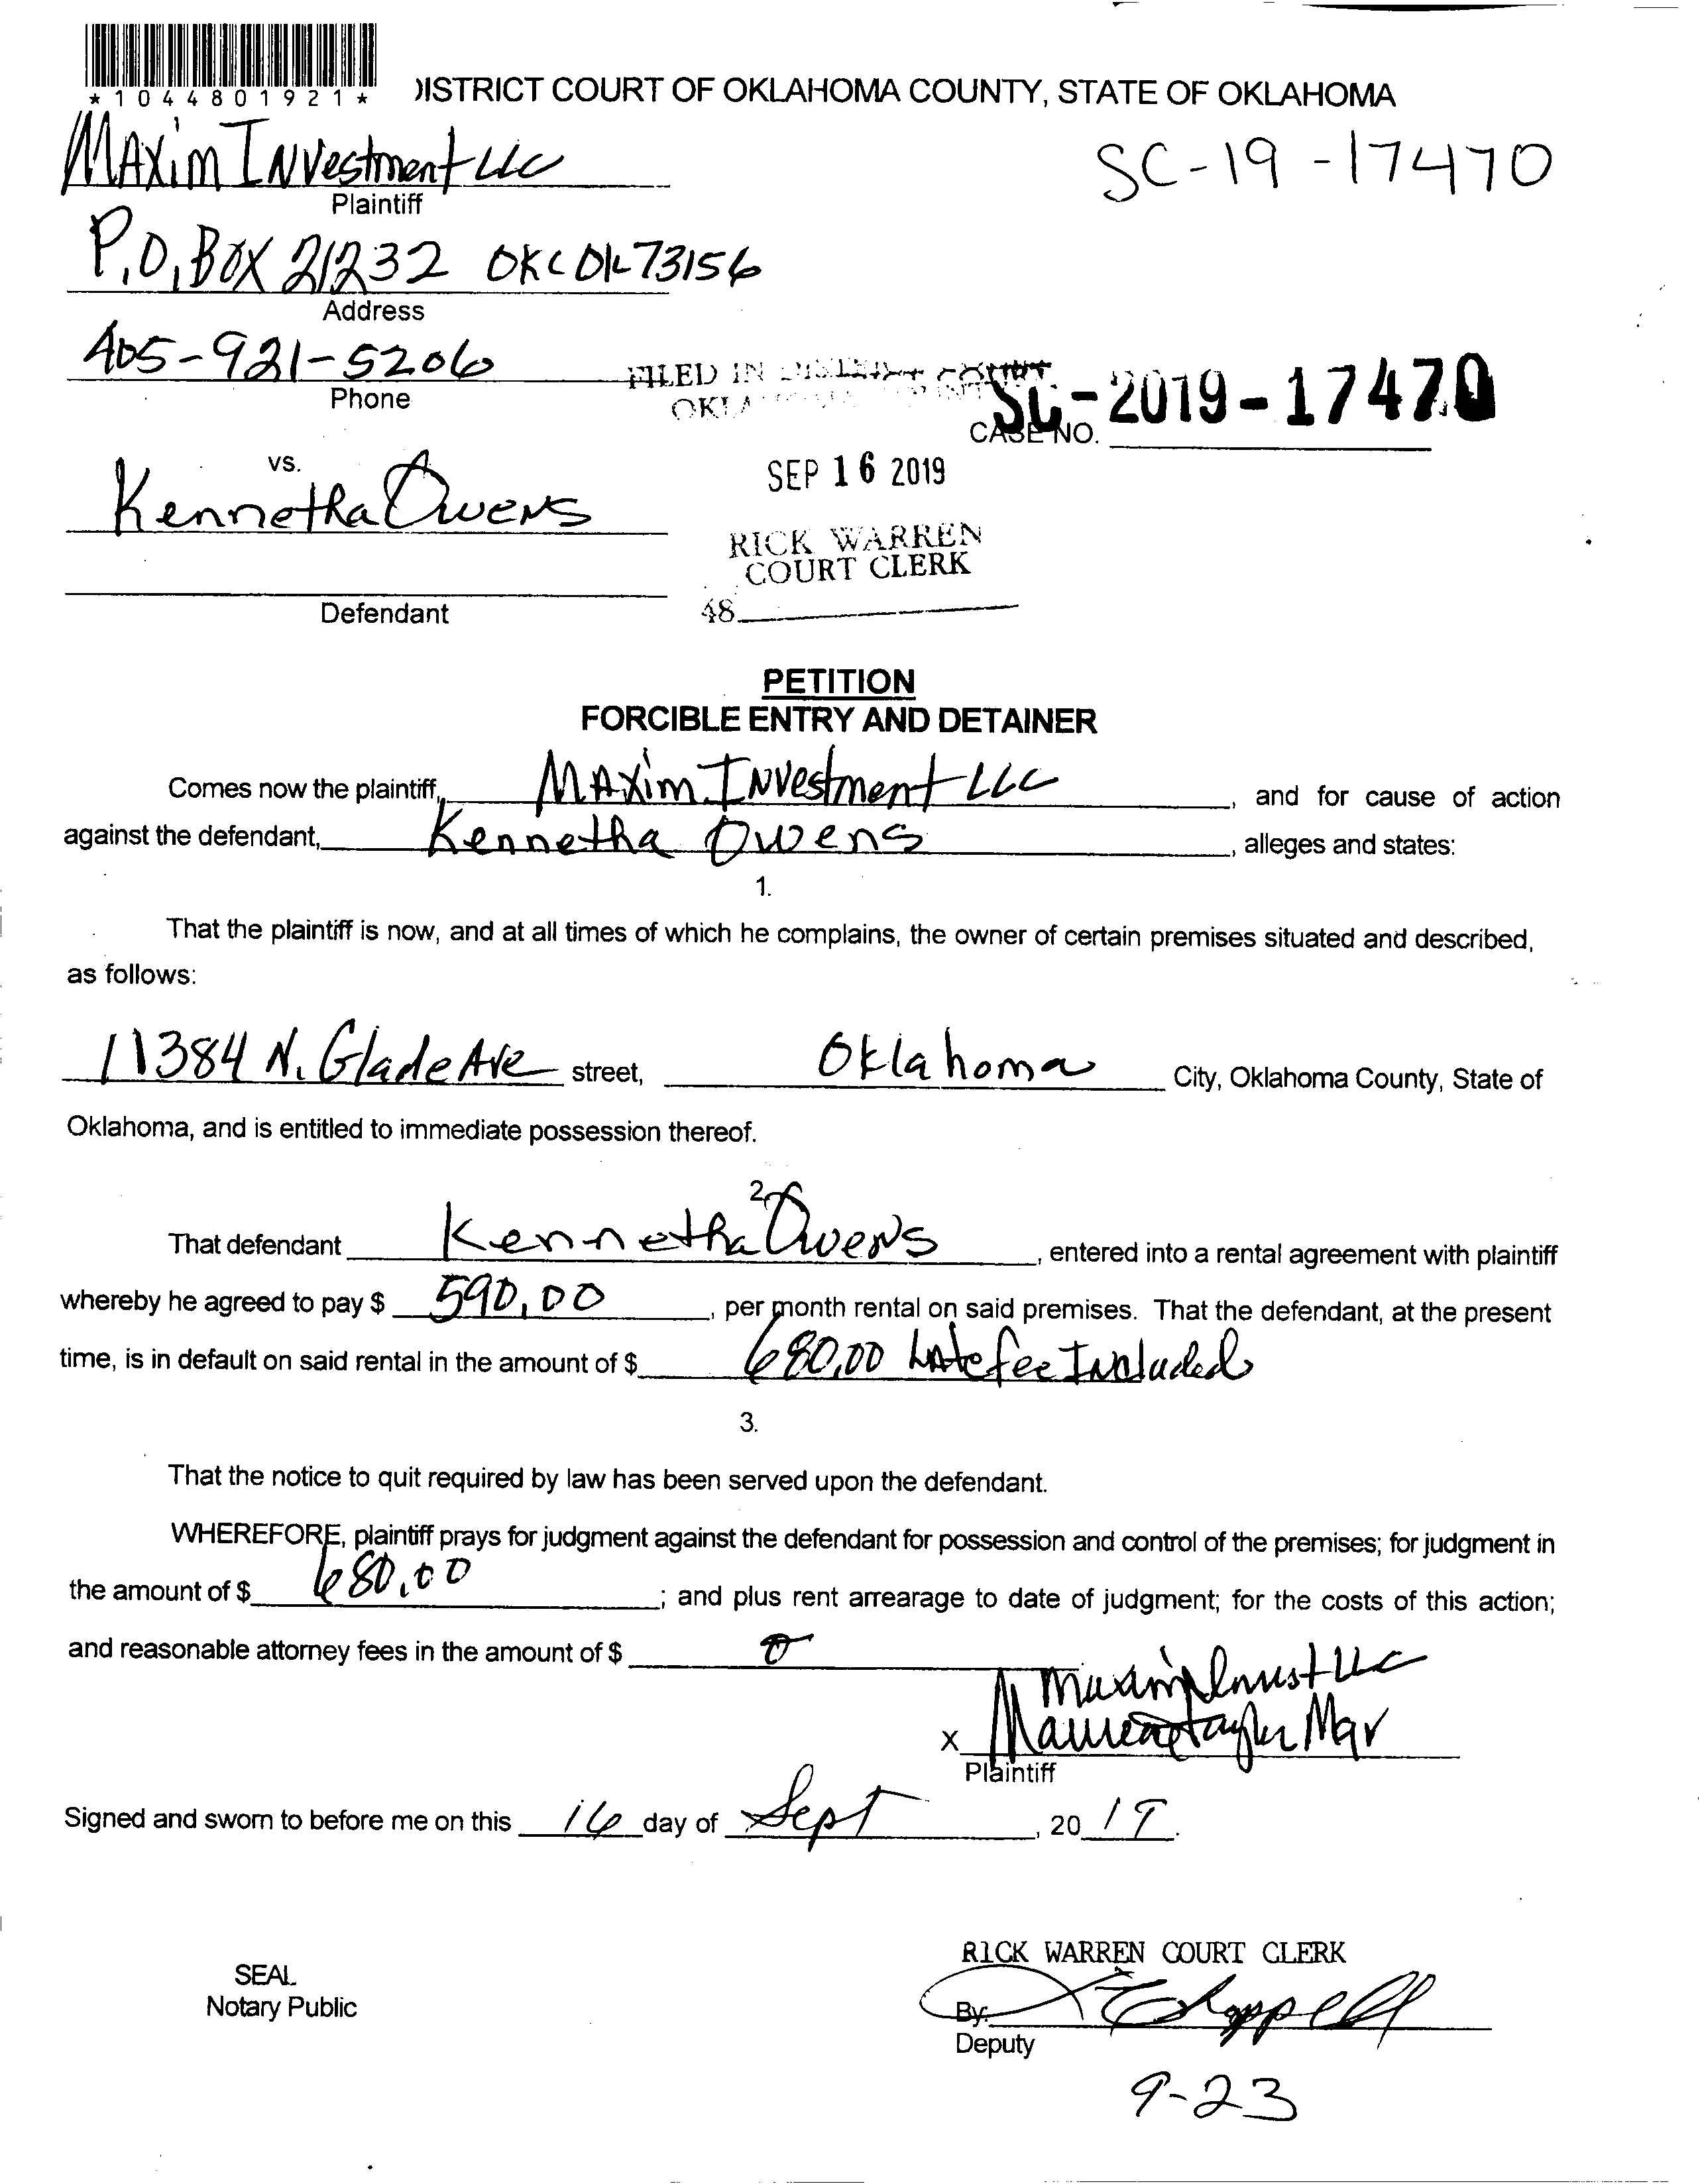 *1044801921*
DISTRICT COURT OF OKLAHOMA COUNTY, STATE OF OKLAHOMA
MAxim INvestment LLC
SC-19-17470
Plaintiff
P.O. BOX 21232 OKC OK 73156
Address
405-921-5206
Phone
FILED IN DISTRICT COURT
SC-2019-17470
CASE NO.
vs.
SEP 16 2019
Kennetha Owens
RICK WARREN
COURT CLERK
Defendant
48
PETITION
FORCIBLE ENTRY AND DETAINER
Comes now the plaintiff, MAxim INvestment LLC, and for cause of action
against the defendant, Kennetha Owens, alleges and states:
1.
That the plaintiff is now, and at all times of which he complains, the owner of certain premises situated and described,
as follows:
11384 N. Glade Ave street, Oklahoma City, Oklahoma County, State of
Oklahoma, and is entitled to immediate possession thereof.
2.
That defendant Kennetha Owens, entered into a rental agreement with plaintiff
whereby he agreed to pay $ 590.00, per month rental on said premises. That the defendant, at the present
time, is in default on said rental in the amount of $ 680.00 Late fee Included
3.
That the notice to quit required by law has been served upon the defendant.
WHEREFORE, plaintiff prays for judgment against the defendant for possession and control of the premises; for judgment in
the amount of $ 680.00; and plus rent arrearage to date of judgment; for the costs of this action;
and reasonable attorney fees in the amount of $ 0
Maxim Invest LLC
X Maureen Taylor Mgr
Plaintiff
Signed and sworn to before me on this 16 day of Sept, 20 19.
RICK WARREN COURT CLERK
SEAL
Notary Public
By: Chappell
Deputy
9-23